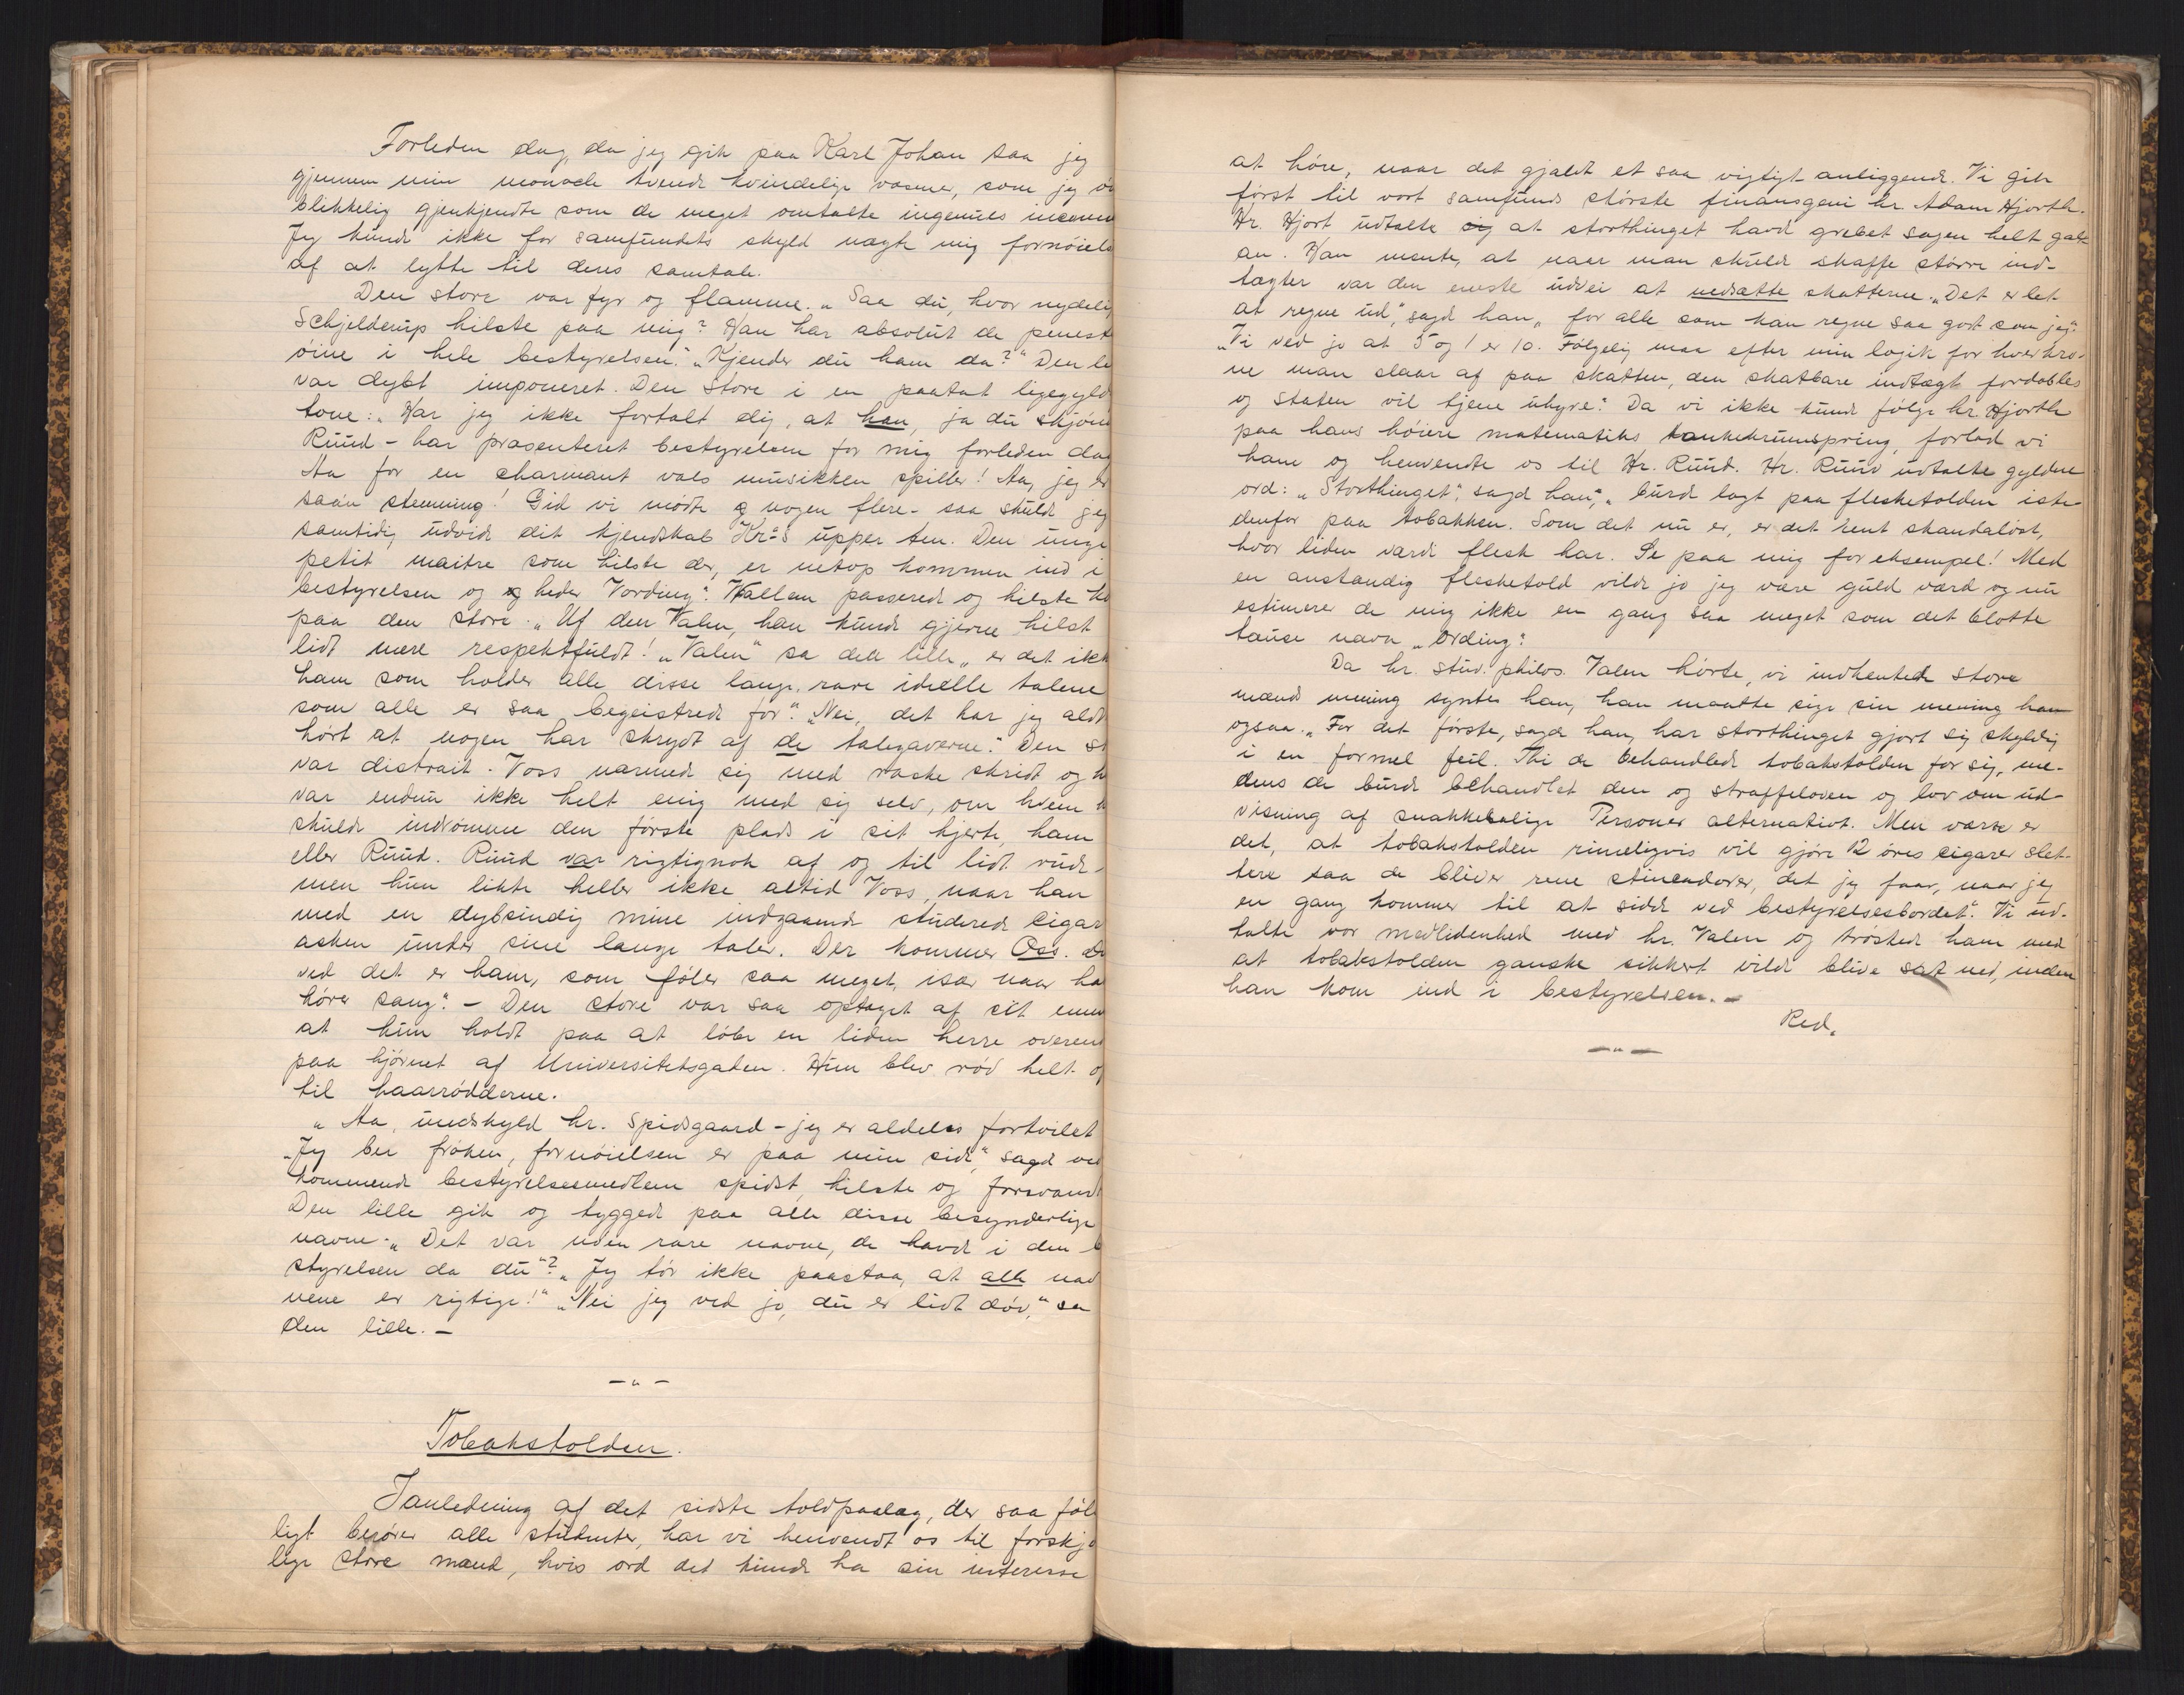 Forleden dag, da jeg gik paa Karl Johan saa jeg
gjennem min monocle tvende kvindelige væsener, som jeg øi
blikkelig gjenkjendte som de meget omtalte ingenues
Jeg kunde ikke for samfundets skyld nægte mig fornöiels
af at lytte til deres samtale.
Den store var fyr og flamme. „Saa du, hvor nydelig
Schjelderup hilste paa mig? Han har absolut de peneste
öine i hele bestyrelsen." „Kjender du ham da?" Den li
var dybt imponeret. Den store i en paatat ligegyld
tone: „Har jeg ikke fortalt dig, at han, ja du skjön
Ruud - har præsenteret bestyrelsen for mig forleden dag
Aa for en charmant vals musikken spiller! Aa, jeg er
saan stemning! Gid vi mödte nogen flere - saa skulde jeg
samtidig udvide dit kjendskab Kr.as upper ten. Den unge
petit maitre som hilste der, er netop kommen ind i
bestyrelsen og heder Vording". Wallem passerede og hilste
paa den store. „Uf den Valen, han kunde gjerne hilst
lidt mere respektfuldt! „Valen" sa den lille „er det ikk
ham som holder alle disse lange, rare ideelle talene
som alle er saa begeistrede for". „Nei, det har jeg aldr
hört at nogen har skrydt af de talegaverne." Den st
var distrait. Voss nærmed sig med raske skridt og h
var endnu ikke helt enig med sig selv, om hvem
skulde indrömme den förste plads i sit hjerte, ham
eller Ruud. Ruud var rigtignok af og til lidt rude,
men hun likte heller ikke altid Voss, naar han
med en dybsindig mine indgaaende studerede cigar
asken under sine lange taler. Der kommer Oss. Du
ved det er ham, som föler saa meget, især naar ha
hörer sang". - Den store var saa optaget af sit emne
at hun holdt paa at löbe en liden herre overend
paa hjörnet af Universitetsgaden. Hun blev röd helt o
til haarrödderne.
„Aa, undskyld hr. Spidsgaard - jeg er aldeles fortvilet
„Jeg ber fröken, fornöielsen er paa min side", sagde ved
kommende bestyrelsesmedlem spidst, hilste og forsvandt
Den lille gik og tyggede paa alle disse besynderlige
navne. „Det var nu en rare navne, de havde i den b
styrelsen da du"? „Jeg tör ikke paastaa, at alle nav
nene er rigtige!" „Nei jeg ved jo, du er lidt döv," sa
den lille. -
- " -
Tobakstolden.
I anledning af det sidste toldpaalæg, der saa föle
ligt berörer alle studenter, har vi henvendt os til forskje
lige store mænd, hvis ord det kunde ha sin interesse
at höre, naar det gjaldt et saa vigtigt anliggende. Vi gik
först til vort samfunds störste finansgeni hr. Adam Hjorth.
Hr. Hjort udtalte at storthinget havde grebet sagen helt galt
an. Han mente, at naar man skulde skaffe större ind-
tægter var den eneste udvei at nedsætte skatterne. „Det er let
at regne ud", sagde han „for alle som kan regne saa godt som jeg".
„Vi ved jo at 5 og 1 er 10. Fölgelig maa efter min logik for hver kro-
ne man slaar af paa skatten, den skatbare indtægt fordobles
og staten vil tjene uhyre". Da vi ikke kunde fölge hr. Hjorth
paa hans höiere matematiks tankekrumspring, forlod vi
ham og henvendte os til Hr. Ruud. Hr. Ruud udtalte gyldne
ord: „Storthinget", sagde han, „burde lagt paa flesketolden iste-
denfor paa tobakken. Som det nu er, er det rent skandalöst,
hvor liden værdi flesk har. Se paa mig for eksempel! Med
en anstændig flesketold vilde jo jeg være guld værd og nu
estimerer de mig ikke en gang saa meget som det blotte
tause navn „Ording".
Da hr. stud. philos. Valen hörte, vi indhentede store
mænds mening syntes han, han maatte sige sin mening han
ogsaa. „For det förste, sagde han, har storthinget gjort sig skyldig
i en formel feil. Thi de behandlede tobakstolden for sig, me-
dens de burde behandlet den og straffeloven og lov om ud-
visning af snakkesalige Personer alternativt. Men værre er
det, at tobakstolden rimeligvis vil gjöre 12 öres cigarer slet-
tere saa de bliver rene stincadorer, det jeg faar, naar jeg
en gang kommer til at sidde ved bestyrelsesbordet". Vi ud-
talte vor medlidenhed med hr. Valen og tröstede ham med
at tobakstolden ganske sikkert vilde blive sat ned, inden
han kom ind i bestyrelsen. -
Red.
- " -